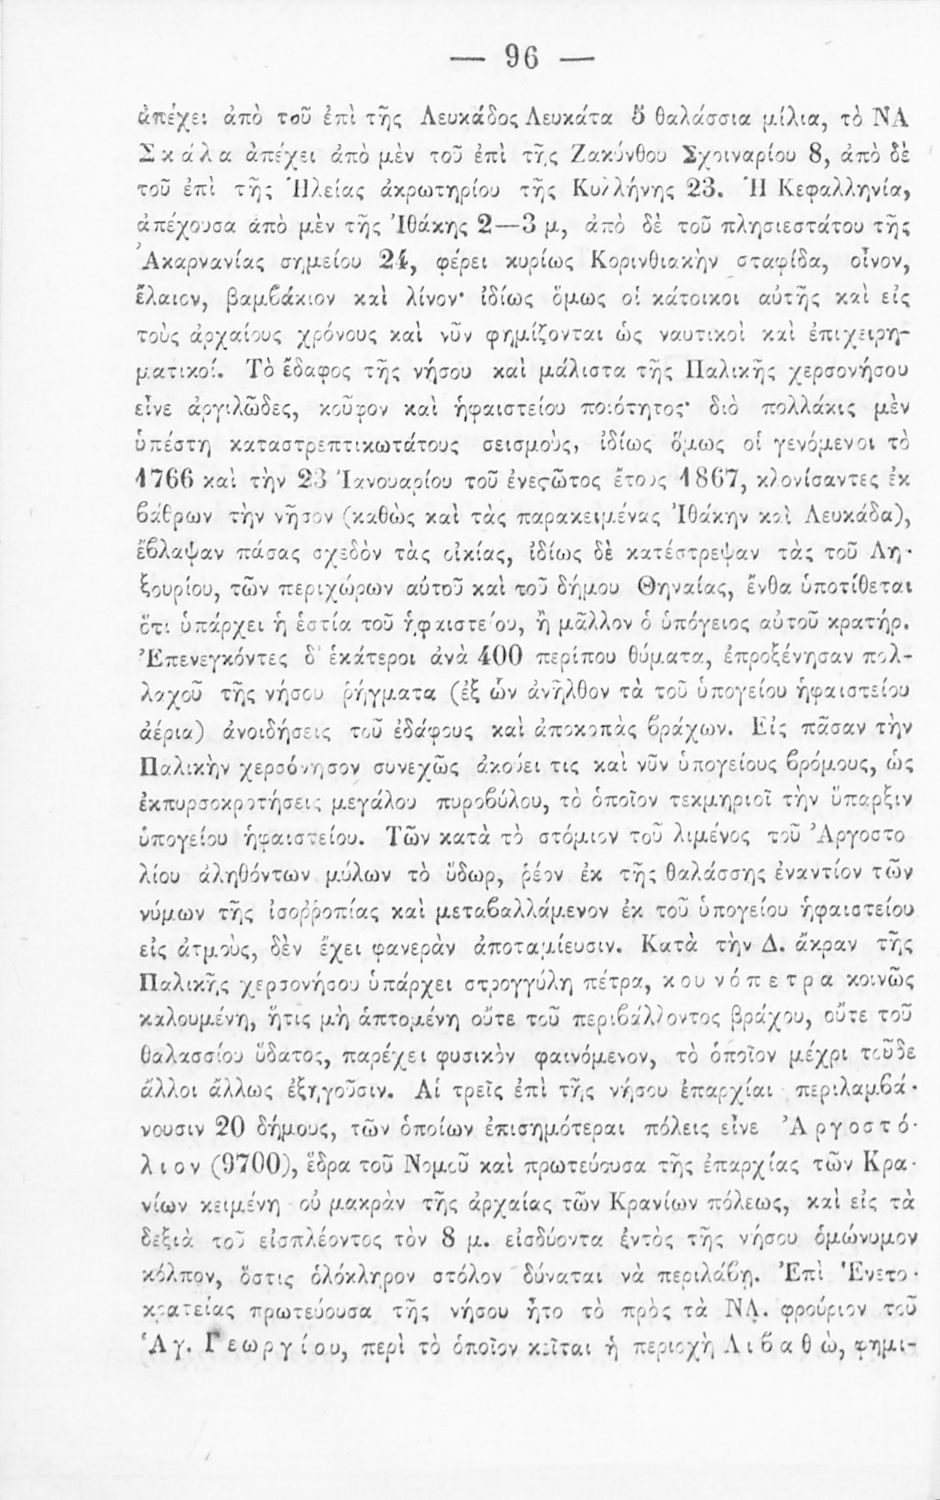 — 96 —
ἀπέχει ἀπὸ τοῦ ἐπὶ τῆς Λευκάδος Λευκάτα 5 θαλάσσια μίλια, τὸ ΝΑ
Σκάλα ἀπέχει ἀπὸ μὲν τοῦ ἐπὶ τῆς Ζακύνθου Σχοιναρίου 8, ἀπὸ δὲ
τοῦ ἐπὶ τῆς Ἠλείας ἀκρωτηρίου τῆς Κυλλήνης 23. Ἡ Κεφαλληνία,
ἀπέχουσα ἀπὸ μὲν τῆς Ἰθάκης 2—3 μ, ἀπὸ δὲ τοῦ πλησιεστάτου τῆς
Ἀκαρνανίας σημείου 24, φέρει κυρίως Κορινθιακὴν σταφίδα, οἶνον,
ἔλαιον, βαμβάκιον καὶ λίνον· ἰδίως ὅμως οἱ κάτοικοι αὐτῆς καὶ εἰς
τοὺς ἀρχαίους χρόνους καὶ νῦν φημίζονται ὡς ναυτικοὶ καὶ ἐπιχειρη-
ματικοί. Τὸ ἔδαφος τῆς νήσου καὶ μάλιστα τῆς Παλικῆς χερσονήσου
εἶνε ἀργιλῶδες, κοῦφον καὶ ἡφαιστείου ποιότητος· διὸ πολλάκις μὲν
ὑπέστη καταστρεπτικωτάτους σεισμούς, ἰδίως ὅμως οἱ γενόμενοι τὸ
1766 καὶ τὴν 23 Ἰανουαρίου τοῦ ἐνεστῶτος ἔτους 1867, κλονίσαντες ἐκ
βάθρων τὴν νῆσον (καθὼς καὶ τὰς παρακειμένας Ἰθάκην καὶ Λευκάδα),
ἔβλαψαν πάσας σχεδὸν τὰς οἰκίας, ἰδίως δὲ κατέστρεψαν τὰς τοῦ Λη-
ξουρίου, τῶν περιχώρων αὐτοῦ καὶ τοῦ δήμου Θηναίας, ἔνθα ὑποτίθεται
ὅτι ὑπάρχει ἡ ἑστία τοῦ ἡφαιστείου, ἢ μᾶλλον ὁ ὑπόγειος αὐτοῦ κρατήρ.
Ἐπενεγκόντες δ' ἑκάτεροι ἀνὰ 400 περίπου θύματα, ἐπροξένησαν πολ-
λαχοῦ τῆς νήσου ῥήγματα (ἐξ ὧν ἀνῆλθον τὰ τοῦ ὑπογείου ἡφαιστείου
ἀέρια) ἀνοιδήσεις τοῦ ἐδάφους καὶ ἀποκοπὰς βράχων. Εἰς πᾶσαν τὴν
Παλικὴν χερσόνησον συνεχῶς ἀκούει τις καὶ νῦν ὑπογείους βρόμους, ὡς
ἐκπυρσοκροτήσεις μεγάλου πυροβόλου, τὸ ὁποῖον τεκμηριοῖ τὴν ὕπαρξιν
ὑπογείου ἡφαιστείου. Τῶν κατὰ τὸ στόμιον τοῦ λιμένος τοῦ Ἀργοστο
λίου ἀληθόντων μύλων τὸ ὕδωρ, ῥέον ἐκ τῆς θαλάσσης ἐναντίον τῶν
νόμων τῆς ἰσοῤῥοπίας καὶ μεταβαλλόμενον ἐκ τοῦ ὑπογείου ἡφαιστείου
εἰς ἀτμούς, δὲν ἔχει φανερὰν ἀποταμίευσιν. Κατὰ τὴν Δ. ἄκραν τῆς
Παλικῆς χερσονήσου ὑπάρχει στρογγύλη πέτρα, κουνόπετρα κοινῶς
καλουμένη, ἥτις μὴ ἁπτομένη οὔτε τοῦ περιβάλλοντος βράχου, οὔτε τοῦ
θαλασσίου ὕδατος, παρέχει φυσικὸν φαινόμενον, τὸ ὁποῖον μέχρι τοῦδε
ἄλλοι ἄλλως ἐξηγοῦσιν. Αἱ τρεῖς ἐπὶ τῆς νήσου ἐπαρχίαι περιλαμβά-
νουσιν 20 δήμους, τῶν ὁποίων ἐπισημότεραι πόλεις εἶνε Ἀργοστό-
λιον (9700), ἕδρα τοῦ Νομοῦ καὶ πρωτεύουσα τῆς ἐπαρχίας τῶν Κρα-
νίων κειμένη οὐ μακρὰν τῆς ἀρχαίας τῶν Κρανίων πόλεως, καὶ εἰς τὰ
δεξιὰ τοῦ εἰσπλέοντος τὸν 8 μ. εἰσδύοντα ἐντὸς τῆς νήσου ὁμώνυμον
κόλπον, ὅστις ὁλόκληρον στόλον δύναται νὰ περιλάβῃ. Ἐπὶ Ἑνετο-
κρατείας πρωτεύουσα τῆς νήσου ἦτο τὸ πρὸς τὰ ΝΑ. φρούριον τοῦ
Ἁγ. Γεωργίου, περὶ τὸ ὁποῖον κεῖται ἡ περιοχὴ Λιβαθώ, φημι-